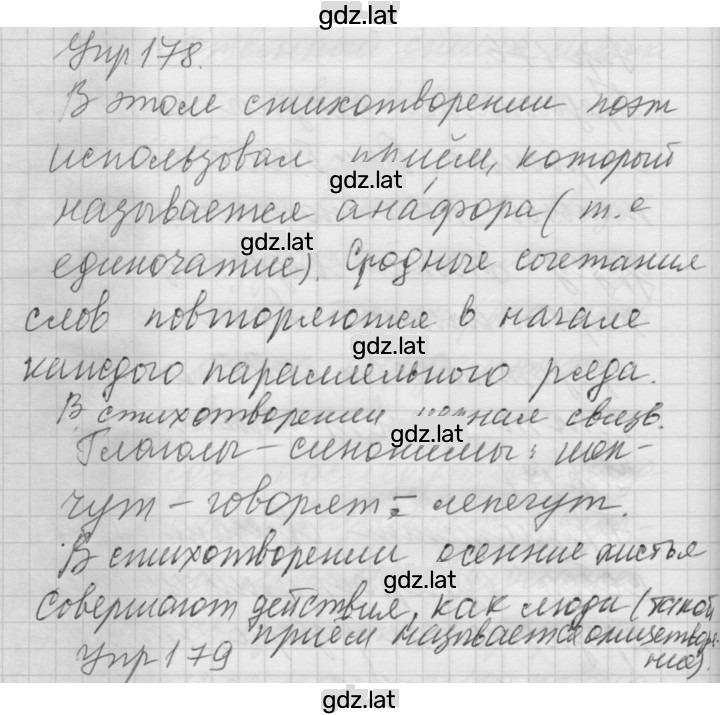 gdz.lat
Упр 178.
В этом стихотворении поэт
использовал приём, который
gdz.lat
называется ана́фора (т.е
gdz.lat
единочатие). Сродные сочетания
слов повторяются в начале
gdz.lat
каждого параллельного ряда.
В стихотворении связь.
gdz.lat
Глаголы – синонимы: шеп-
чут – говорят – лепечут.
В стихотворении осенние листья
gdz.lat
совершают действия, как люди (такой
приём называется олицетворе-
ние).
Упр 179
gdz.lat